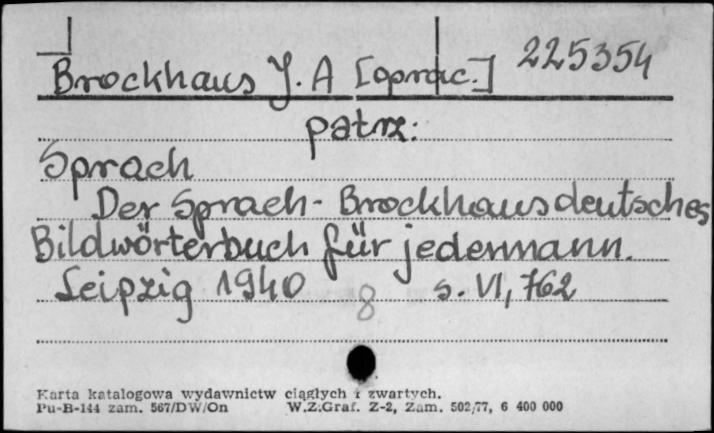 Brockhaus J. A [oprac.] 225354
patrz:
Sprach
Der Sprach-Brockhaus deutsches
Bildwörterbuch für jedermann.
Leipzig 1940 8 s. VI, 762
Karta katalogowa wydawnictw ciągłych i zwartych.
Pu-B-144 zam. 567/DW/On W.Z.Graf. Z-2, Zam. 502/77, 6 400 000